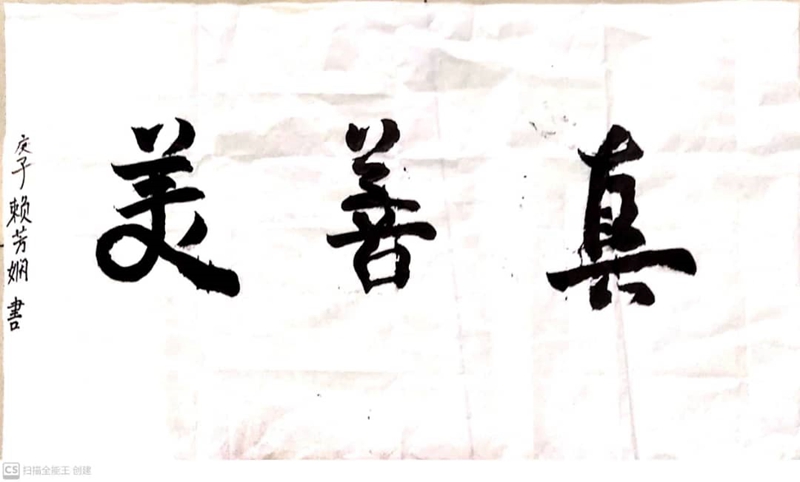 真善美
庚子 赖芳娴 書
CS 扫描全能王 创建